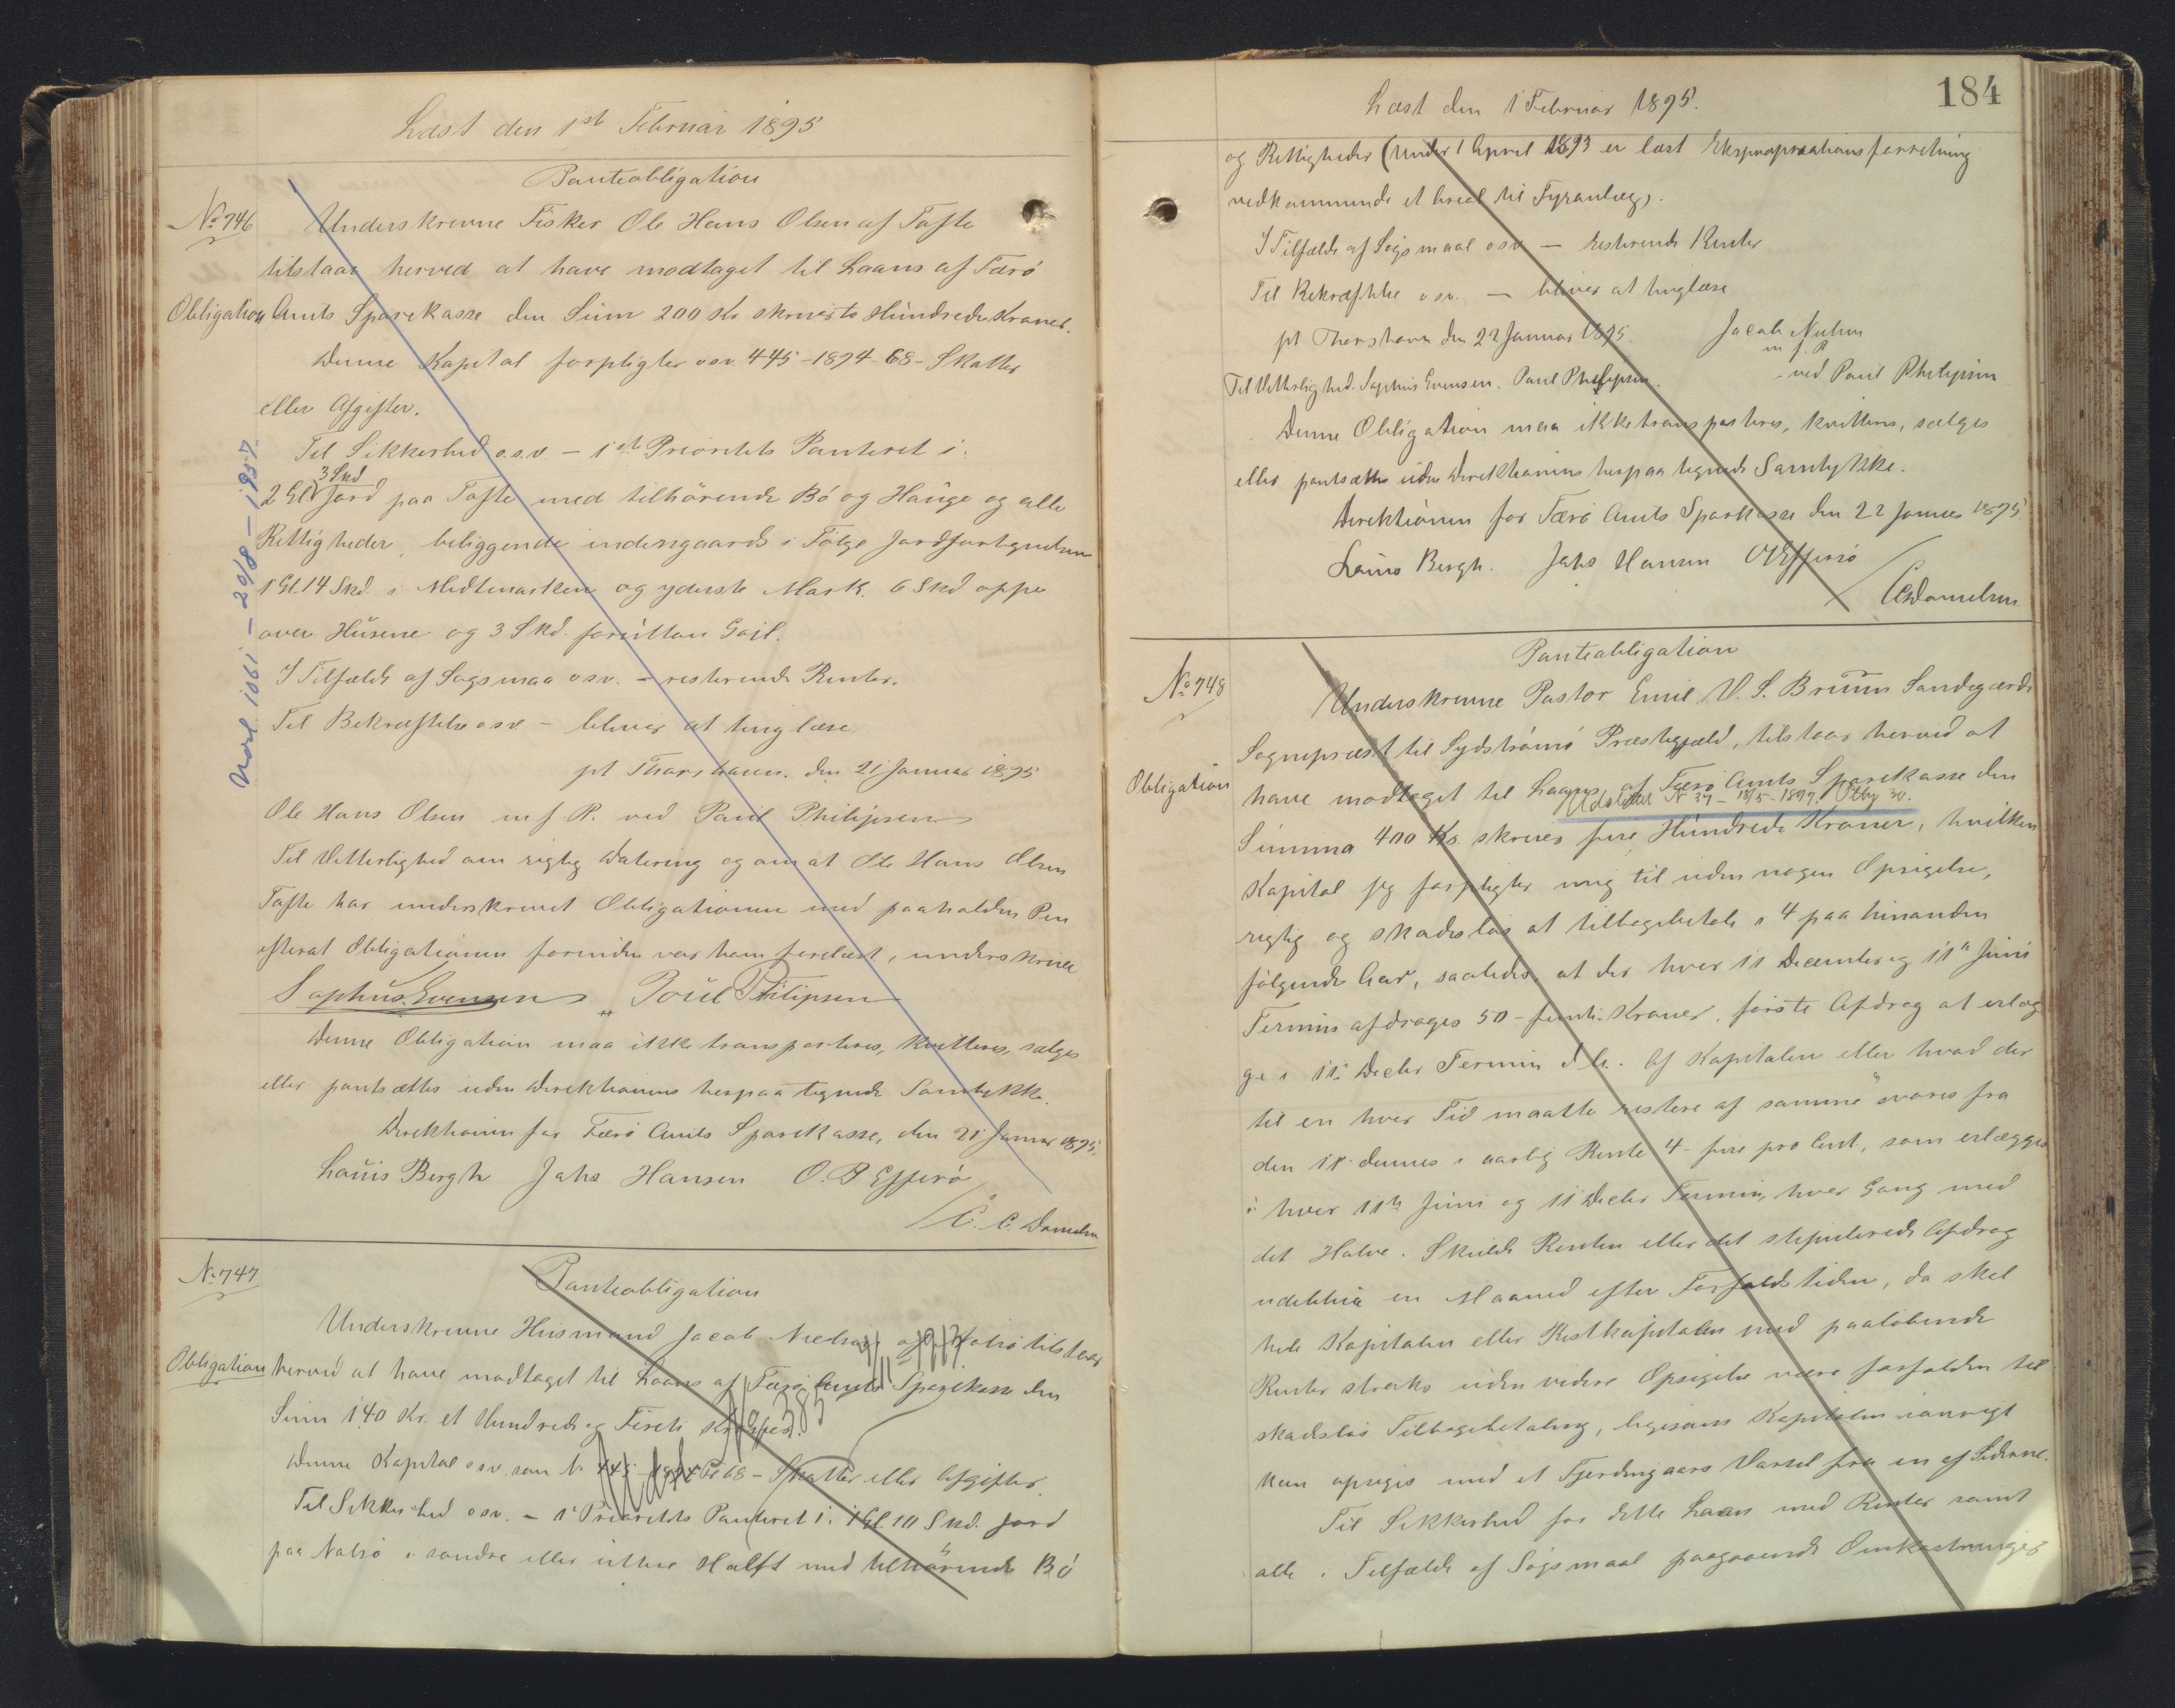 Læst den 1st Februar 1895
Panteobligation
No 746
Underskrevne Fisker Ole Hans Olsen af Tofte
tilstaar herved at have modtaget til Laans af Færö
Obligation
Amts Sparekasse den Sum 200 Kr skriver to Hundrede Kroner.
Denne Kapital forpligter osv. 445-1894-68- Skatter
eller Afgifter.
Til Sikkerhed o.s.v. - 1ste Prioritets Panteret i.
3 Skd
2 Gl Jord paa Tofte med tilhörende Bö og Hauge og alle
Rettigheder, beliggende indengaards i Fölge Jordfortegnelsen
1 Gl. 14 Skd. i Midtmarken og yderste Mark. 6 Skd oppe
over Husene og 3 Skd. foruttan Gail.
I Tilfælde af Sagsmaa osv. - resterende Renter.
Til Bekræftelse osv - bliver at tinglæse
pt Thorshavn. den 21 Januar 1895
Ole Hans Olsen m f. P. ved Paul Philipsen
Til Vitterlighed om rigtig Datering og om at Ole Hans Olsen
Tofte har underskrevet Obligationen med paaholden Pen
efterat Obligationen forinden var ham forelæst, underskriver
Sophus Evensen " Poul Philipsen
Denne Obligation maa ikke transporteres, kvitteres, sælges
eller pantsættes uden Direktionens herpaa tegnede Samtykke.
Direktionen for Færö Amts Sparekasse, den 21 Januar 1895.
Louis Bergh Johs Hansen O. P Effersö
/C. C. Danielsen
No 747
Panteobligation
Underskrevne Husmand Jacob Nielsen af Nolsö tilstaar
Obligation
herved at have modtaget til Laans af Færö Amts Sparekasse den
Sum 140 Kr. et Hundrede og Fireti Kroner.
Denne Kapital osv. som No 445-1894 68 - Skatter eller Afgifter.
Til Sikkerhed osv. - 1 Prioritets Panteret i. 1 Gl 10 Skd. Jord
paa Nolsö i söndre eller uttere Halft med tilhörende Bö
184
Læst den 1 Februar 1895.
og Rettigheder (under 1 April 1893 er læst Expropriationsforretning
vedkommende et Areal til Fyranlæg).
I Tilfælde af Søgsmaal osv - resterende Renter
Til Bekræftelse osv. - bliver at tinglæse
pt Thorshavn den 22 Januar 1895.
Jacob Nielsen
m f. P
Til Vitterlighed. Sophus Evensen. Paul Philipsen.
ved Paul Philipsen
Denne Obligation maa ikke transporteres, kvitteres, sælges
eller pantsættes uden Direktionens herpaa tegnede Samtykke.
Direktionen for Færö Amts Sparekasse den 22 Januar 1895.
Louis Bergh. Johs Hansen OPEffersö
/CCDanielsen
Panteobligation
No 748
Underskrevne Pastor Emil V. S. Bruun Sandagerde
Sognepræst til Sydströmö Præstegjæld, tilstaar herved at
Obligation
have modtaget til Laans af Færö Amts Sparekasse den
Udslettet No 37 - 18/5-1897.
Summa 400 Kr. skriver fire Hundrede Kroner, hvilken
Kapital jeg forpligter mig til uden nogen Opsigelse,
rigtig og skadeslös at tilbagebetale i 4 paa hinanden
fölgende Aar, saaledes at der hver 11 December og 11" Juni
Termin afdrages 50 - femti Kroner, förste Afdrag at erlæg
ge i 11" Decbr Termin d A. Af Kapitalen eller hvad der
til en hver Tid maatte restere af samme svares fra
den 11 dennes i aarlig Rente 4 - fire pro Cent, som erlægges
i hver 11te Juni og 11 Decbr Termin, hver Gang med
det Halve. Skulde Renten eller det stipulerede Afdrag
udeblive en Maaned efter Forfaldstiden, da skal
hele Kapitalen eller Restkapitalen med paalöbende
Renter straks uden videre Opsigelse være forfalden til
skadeslös Tilbagebetaling, ligesom Kapitalen iövrigt
kan opsiges med et Fjerdingaars Varsel fra en af Siderne.
Til Sikkerhed for dette Laan med Renter samt
alle i Tilfælde af Søgsmaal paagaaende Omkostninger